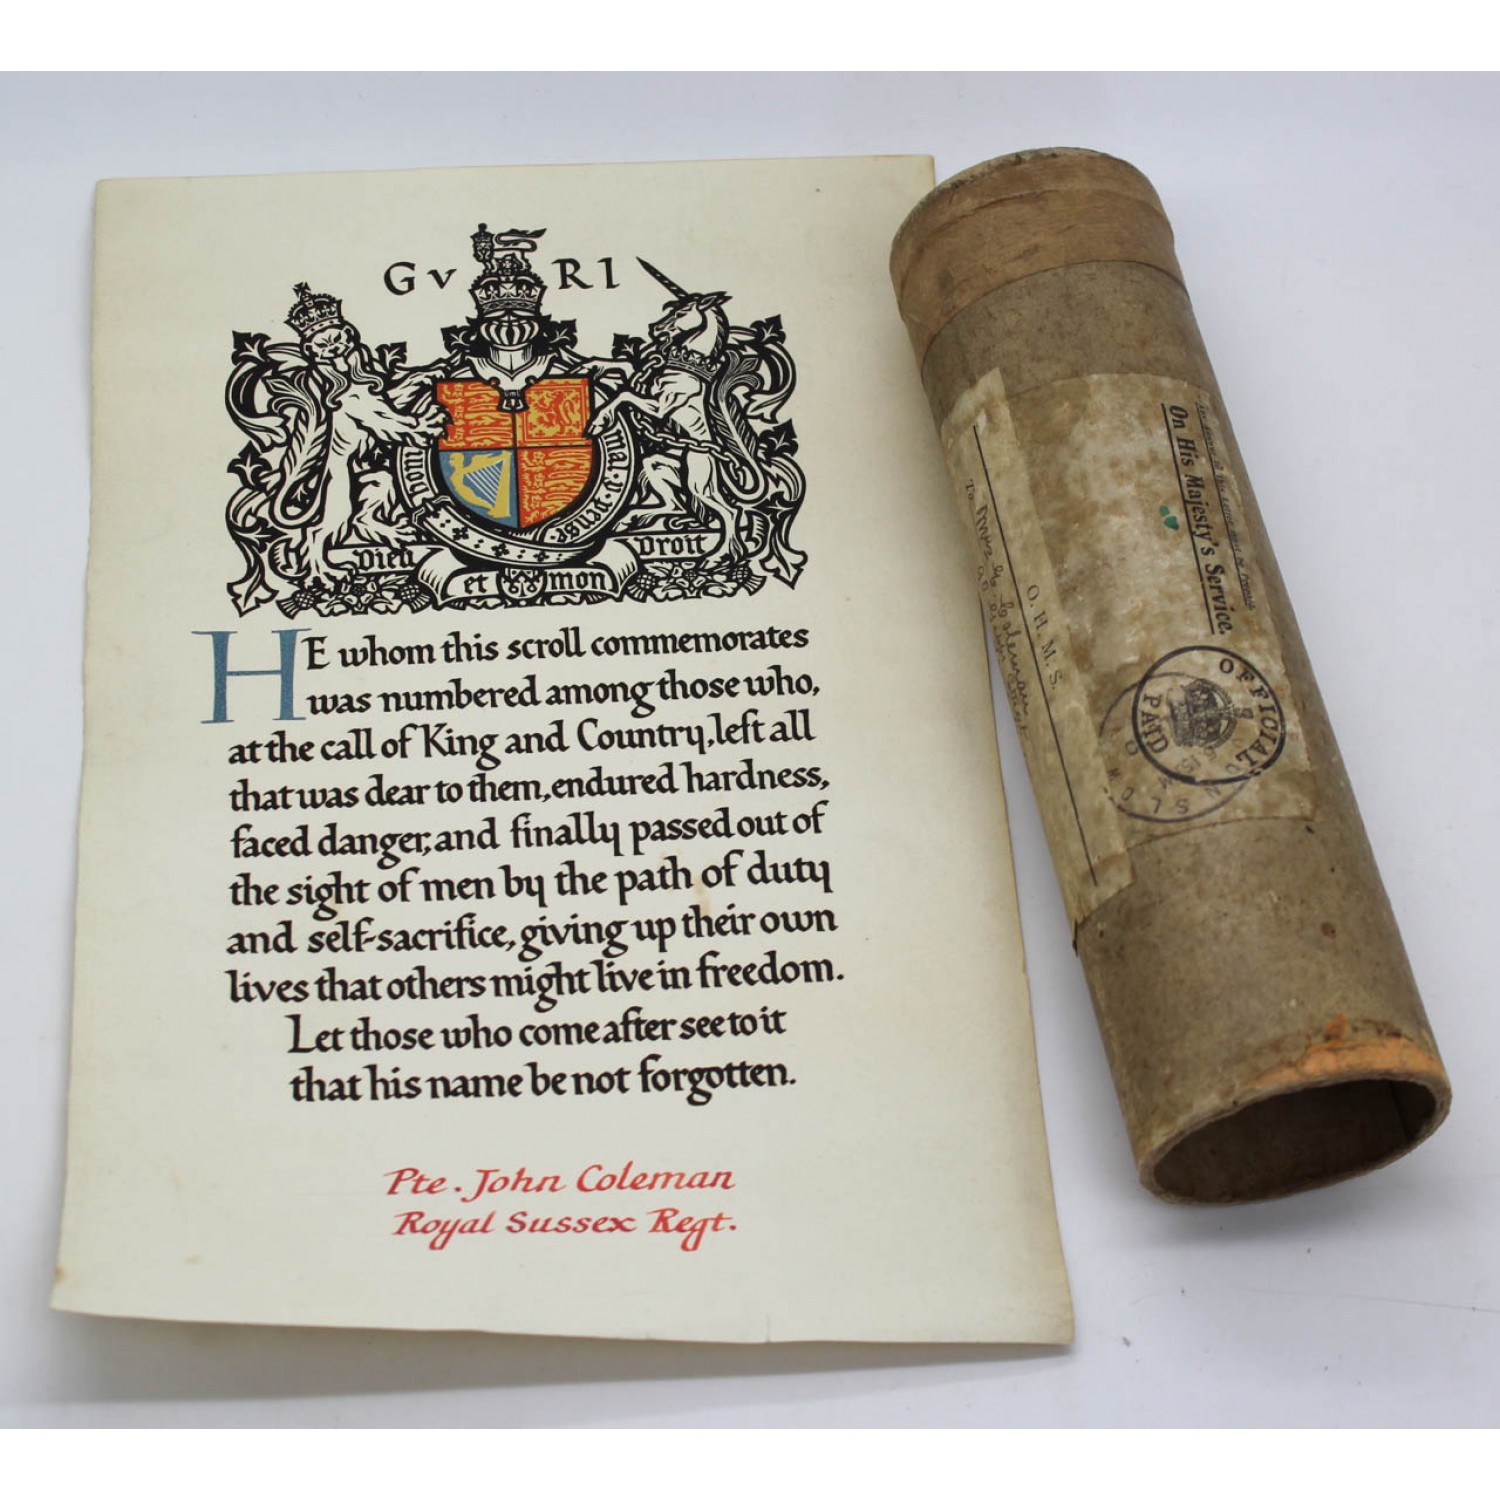 GV RI
honi
mal·y·pense
Dieu et mon Droit
HE whom this scroll commemorates
was numbered among those who,
at the call of King and Country, left all
that was dear to them, endured hardness,
faced danger, and finally passed out of
the sight of men by the path of duty
and self-sacrifice, giving up their own
lives that others might live in freedom.
Let those who come after see to it
that his name be not forgotten.
Pte. John Coleman
Royal Sussex Regt.
On His Majesty's Service.
OFFICIAL
PAID
O. H. M. S.
To Mrs
Coleman